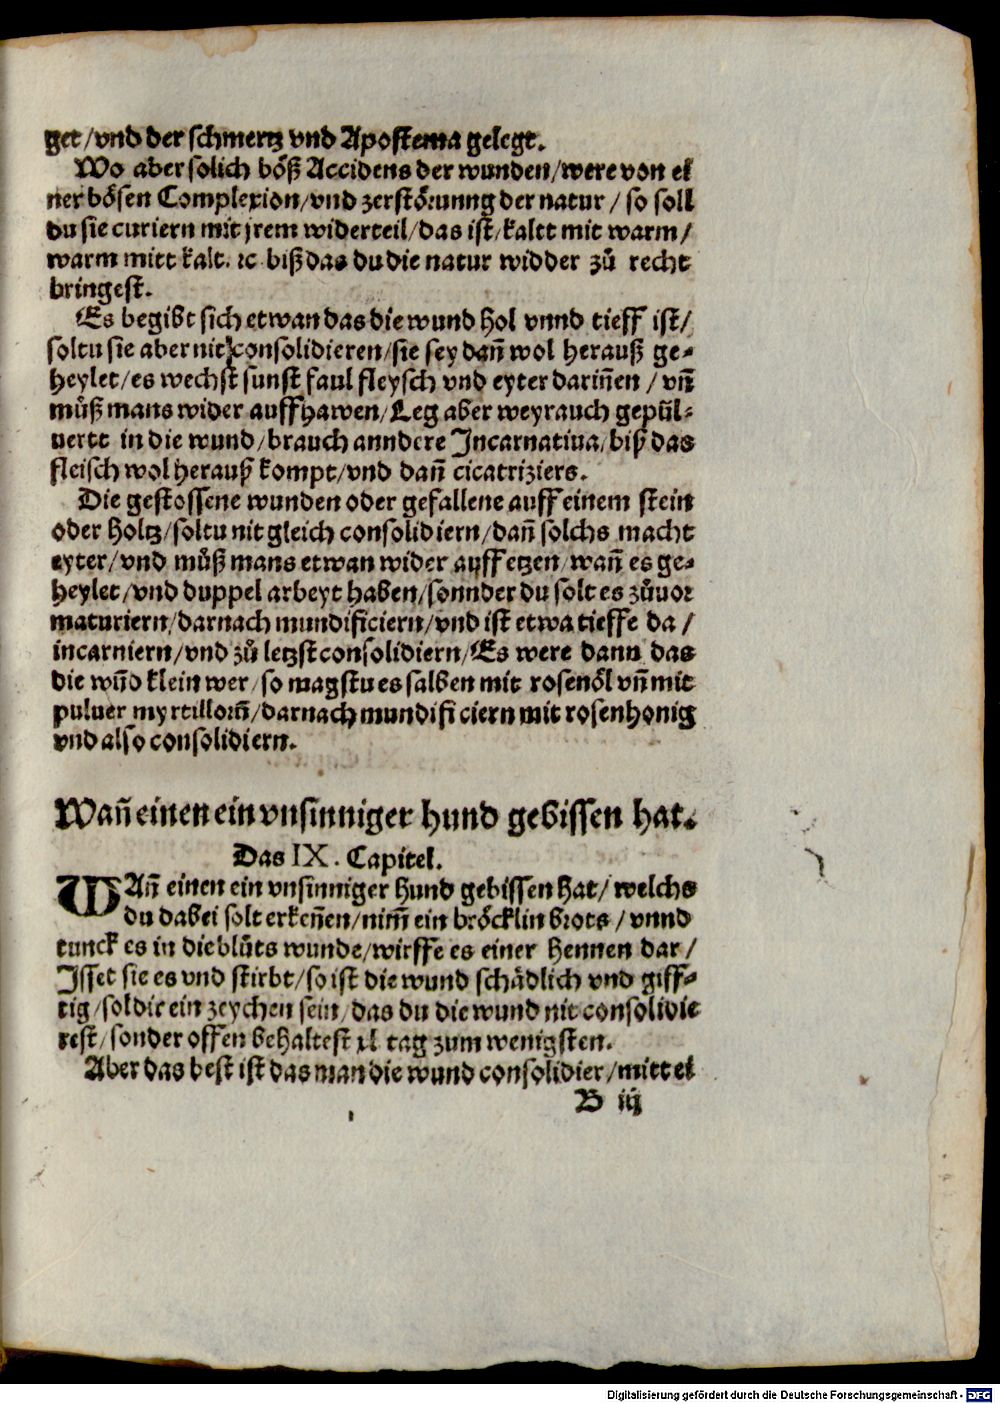 get/vnd der schmertz vnd Apostema gelegt.
Wo aber solich böß Accidens der wunden/were von ei
ner bösen Complexion/vnd zerstörunng der natur / so soll
du sie curiern mit jrem widerteil/das ist/kaltt mit warm/
warm mitt kalt. ꝛc. biß das du die natur widder zů recht
bringest.
Es begibt sich etwan das die wund hol vnnd tieff ist/
soltu sie aber nit consolidieren/sie sey dañ wol herauß ge⸗
heylet/es wechst sunst faul fleysch vnd eyter dariñen / vñ
můß mans wider auffhawen/Leg aber weyrauch gepül⸗
uertt in die wund/brauch anndere Incarnatiua/biß das
fleisch wol herauß kompt/vnd dañ cicatriziers.
Die gestossene wunden oder gefallene auff einem stein
oder holtz/soltu nit gleich consolidiern/dañ solchs macht
eyter/vnd můß mans etwan wider auff etzen/wañ es ge⸗
heylet/vnd duppel arbeyt haben/sonnder du solt es zůuor
maturiern/darnach mundificiern/vnd ist etwa tieffe da /
incarniern/vnd zů letzst consolidiern/Es were dann das
die wũd klein wer/so magstu es salben mit rosenöl vñ mit
puluer myrtillorũ/darnach mundificiern mit rosenhonig
vnd also consolidiern.
Wañ einen ein vnsinniger hund gebissen hat.
Das IX. Capitel.
WAñ einen ein vnsinniger hund gebissen hat/welchs
du dabei solt erkeñen/nim̃ ein bröcklin brots/vnnd
tunck es in die blůts wunde/wirffe es einer hennen dar/
Isset sie es vnd stirbt/so ist die wund schädlich vnd giff⸗
tig/sol dir ein zeychen sein/das du die wund nit consolidie
rest/sonder offen behaltest xl tag zum wenigsten.
Aber das best ist das man die wund consolidier/mitt ei
B iij
Digitalisierung gefördert durch die Deutsche Forschungsgemeinschaft - DFG